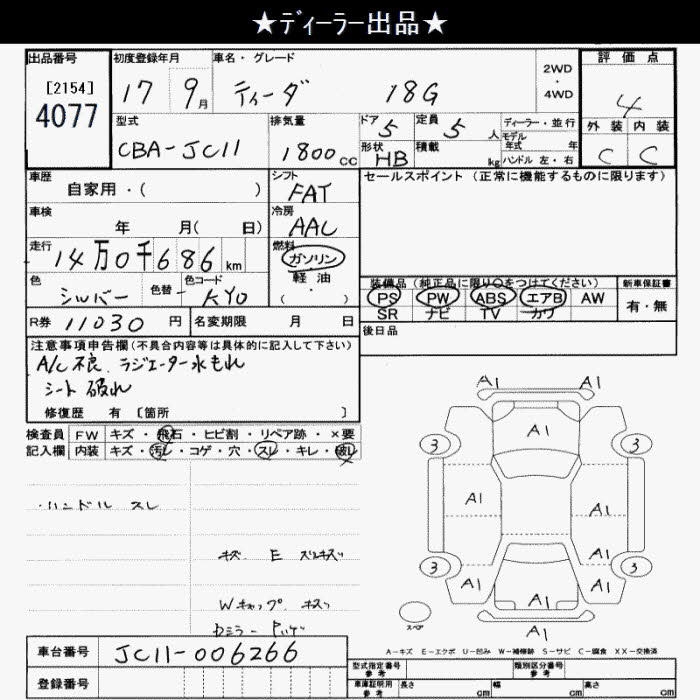 ★ディーラー出品★
出品番号 初度登録年月 車名・グレード 評価点
[2154] 17 9月 ティーダ 18G 2WD・4WD 4
4077
型式 排気量 ドア 定員 ディーラー・並行 外装 内装
CBA-JC11 1800cc 5 5人 モデル年式 年 C C
形状 HB 積載 kg ハンドル 左・右
車歴 シフト セールスポイント(正常に機能するものに限ります)
自家用・( ) FAT
車検 冷房
年 月( 日) AAC
走行 燃料
14万0千686km ガソリン
軽油
色 色替 色コード 装備品(純正品に限り○をつけてください) 新車保証書
シルバー - KY0 ( ・ ) PS PW ABS エアB AW 有・無
SR ナビ TV カワ
R券 11030円 名変期限 月 日 後日品
注意事項申告欄(不具合内容等は具体的に記入して下さい)
A/C不良、ラジエーター水もれ
シート破れ
修復歴 有 [箇所 ]
検査員 FW キズ・飛石・ヒビ割・リペア跡・×要
記入欄 内装 キズ・汚レ・コゲ・穴・スレ・キレ・破レ
・ハンドル スレ
キズ E
Wキャップ キズ
A1 A1
A1
3 3
A1 A1
A1
3 3
A1 A1
A1
A1
スペア
A-キズ E-エクボ U-凹み W-補修跡 S-サビ C-腐食 XX-交換済
車台番号 JC11-006266
型式指定番号 参考 類別区分番号 参考
登録番号 車庫証明用 参考 長さ cm 幅 cm 高さ cm